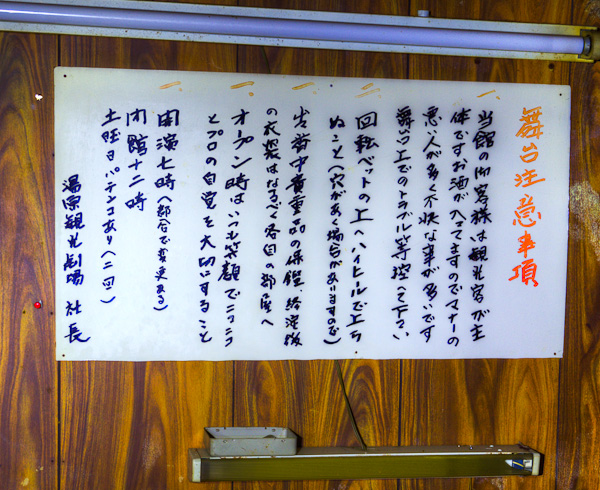 舞台注意事項
一、当館の御客様は観光客が主
体ですお酒が入ってますのでマナーの
悪い人が多く不快な事が多いです
舞台上でのトラブル等控へて下さい
一、回転ベットの上へハイヒールで上ら
ぬこと(穴があく場合がありますので)
一、出番中貴重品の保 終演後
の衣裳はなるべく各自の部屋へ
一、オープン時はいつも笑顔でニコニコ
とプロの自覚を大切にすること
一、開演七時(都合で変更ある)
閉館十二時
土旺日パテンコあり(二回)
湯原観光劇場 社長